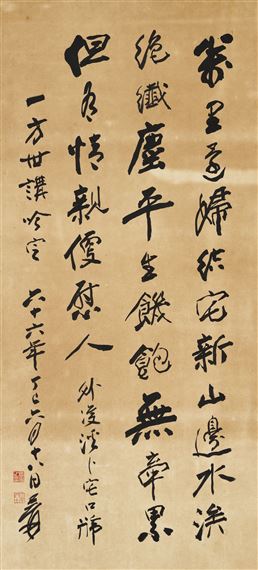 萬里還歸結宅新山邊水涘
絕纖塵平生饑飽無牽累
但有情親優慰人 外雙溪卜宅口號
一方世講吟定 六十六年丁巳六月十八日 爰